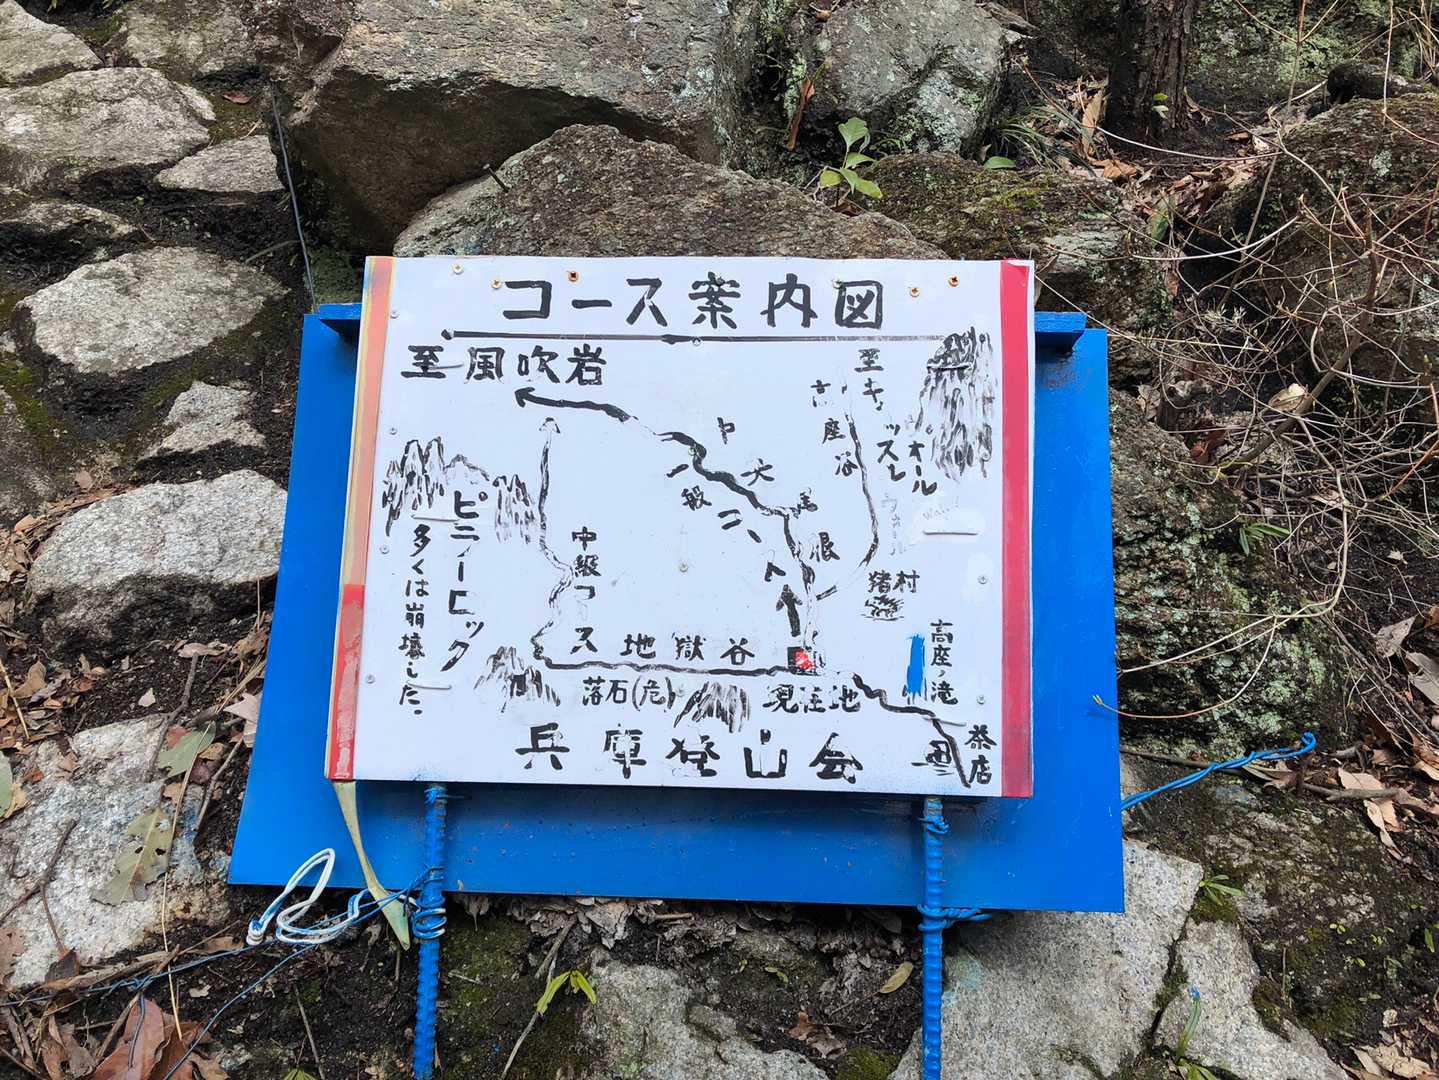 コース案内図
至風吹岩
至キャッスル
ウォール
高座谷
中央尾根
一般コート
中級コース
ピラーロック
多くは崩壊した。
猪村
地獄谷
高座ノ滝
落石(危)
現在地
茶店
兵庫登山会